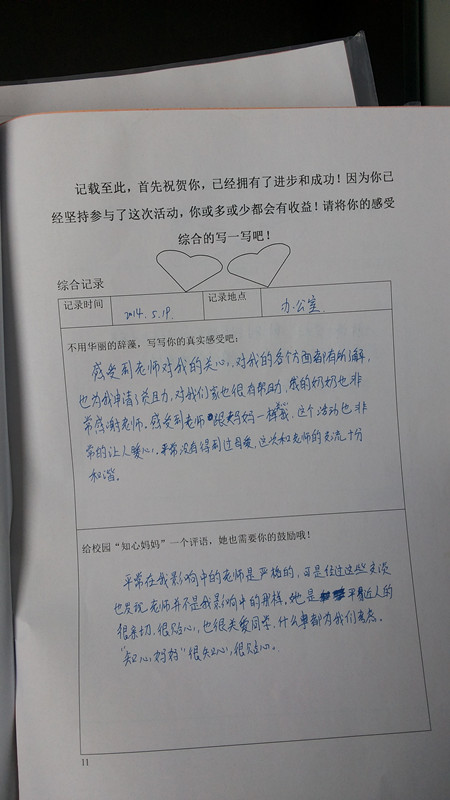 记载至此，首先祝贺你，已经拥有了进步和成功！因为你已
经坚持参与了这次活动，你或多或少都会有收益！请将你的感受
综合的写一写吧！
综合记录
记录时间 2014.5.19. 记录地点 办公室
不用华丽的辞藻，写写你的真实感受吧：
感受到老师对我的关心，对我的各个方面都有所了解，
也为我申请了资助，对我们家也很有帮助，我的奶奶也非
常感谢老师。感受到老师跟妈妈一样亲，这个活动也非
常的让人暖心，平常没有得到过母爱，这次和老师的交流十分
和谐。
给校园“知心妈妈”一个评语，她也需要你的鼓励哦！
平常在我影响中的老师是严格的，可是经过这些交流
也发现老师并不是我影响中的那样，她是平易近人的
很亲切，很贴心，也很关爱同学，什么事都为我们考虑。
“知心妈妈”很知心，很贴心。
11